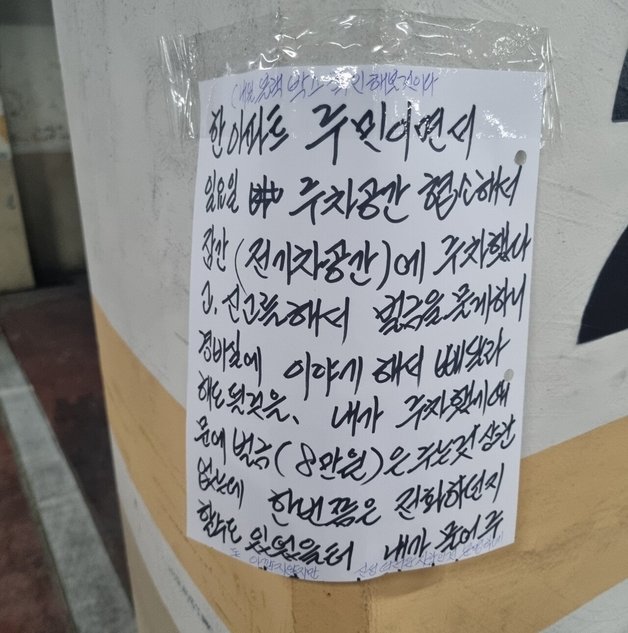 한 아파트 주민이면서
일요일 주차공간 협소해서
잠간 (전기차공간)에 주차했다
고, 신고를해서 벌금을 물게하니
경비실에 이야기해서 빼달라
해도 될것을, 내가 주차했기에
문에 벌금(8만원)은 무는것 상관
없는데 한번쯤은 전화하던지
할수도 있었을터 내가 물어 주